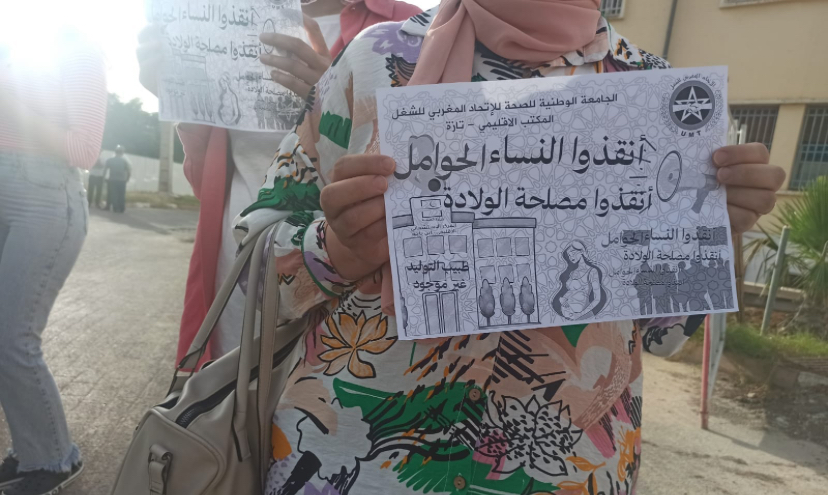 الجامعة الوطنية للصحة للإتحاد المغربي للشغل
المكتب الاقليمي - تازة
أنقذوا النساء الحوامل
أنقذوا مصلحة الولادة
UMT
طبيب التوليد
غير موجود
أنقذوا النساء الحوامل
أنقذوا مصلحة الولادة
أنقذوا النساء الحوامل
أنقذوا مصلحة الولادة